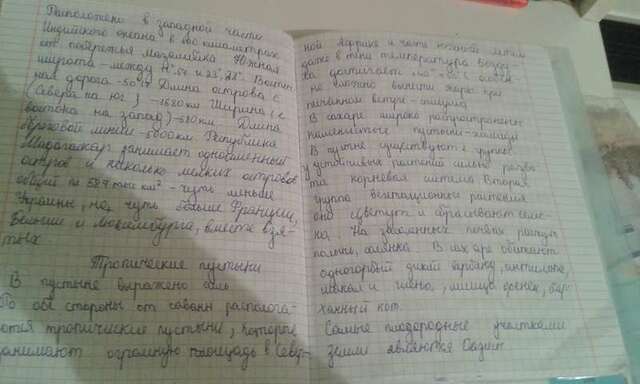 Расположено в западной части
Индийского океана в 400 километрах
от побережья Мозамбика Южная
широта - между 11°57 и 25°38'. Восточ
ная долгота - 50°17 Длина острова с
(севера на юг) - 1580 км Ширина (с
востока на запад) - 580 км. Длина
береговой линии - 5000 км. Республика
Мадагаскар занимает одноименный
остров и несколько мелких островов
общей пл 587 тыс км² - чуть меньше
Украины, но чуть больше Франции,
Бельгии и Люксембурга, вместе взя-
тых
Тропические пустыни
В пустыне выражено
По обе стороны от саванн располага-
ются тропические пустыни, которые
занимают огромную площадь в Север-
ной Африке и часть южной летом
даже в тени температура возду-
ха достигает
но сложно вынести жару при
горячем ветре -
В сахаре широко распространены
каменистые пустыни - хаммады
В пустыне существует 2 группы
у устойчивых растений сильно разви
та корневая система Вторая
группа вегетационного растения
они цветут и образовывают семе-
на. На засоленных почвах растут
полынь, солянка В сахаре обитают
одногорбый дикий верблюд, антилопы,
шакал и гиена, лисица фенек, бар-
ханный кот.
Самые плодородные участками
земли являются Оазин